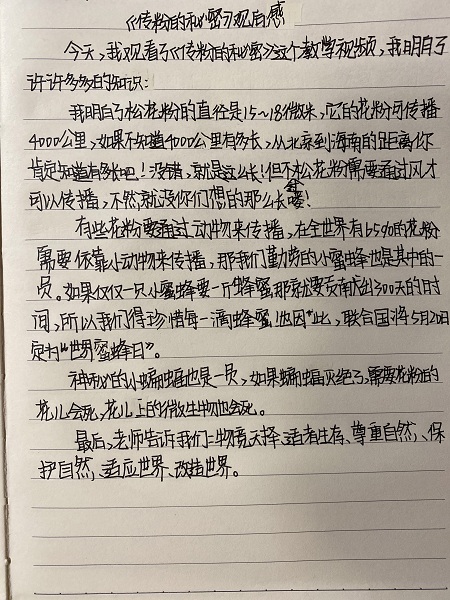 《传粉的秘密》观后感
今天,我观看了《传粉的秘密》这个教学视频,我明白了
许许多多的知识:
我明白了松花粉的直径是15~18微米,它的花粉可传播
4000公里,如果不知道4000公里有多长,从北京到海南的距离你
肯定知道有多长吧!没错,就是这么长!但不松花粉需要通过风才
可以传播,不然就没你们想的那么长喽!
有些花粉要通过动物来传播,在全世界有65%的花粉
需要依靠小动物来传播,那我们勤劳的小蜜蜂也是其中的一
员。如果仅仅一只小蜜蜂要一斤蜂蜜,那就要贡献出300天的时
间,所以我们得珍惜每一滴蜂蜜,也因此,联合国将5月20日
定为“世界蜜蜂日”。
神秘的小蝙蝠也是一员,如果蝙蝠灭绝了,需要花粉的
花儿会死,花儿上的微生物也会死。
最后,老师告诉我们:物竞天择、适者生存、尊重自然、保
护自然,适应世界、改造世界。